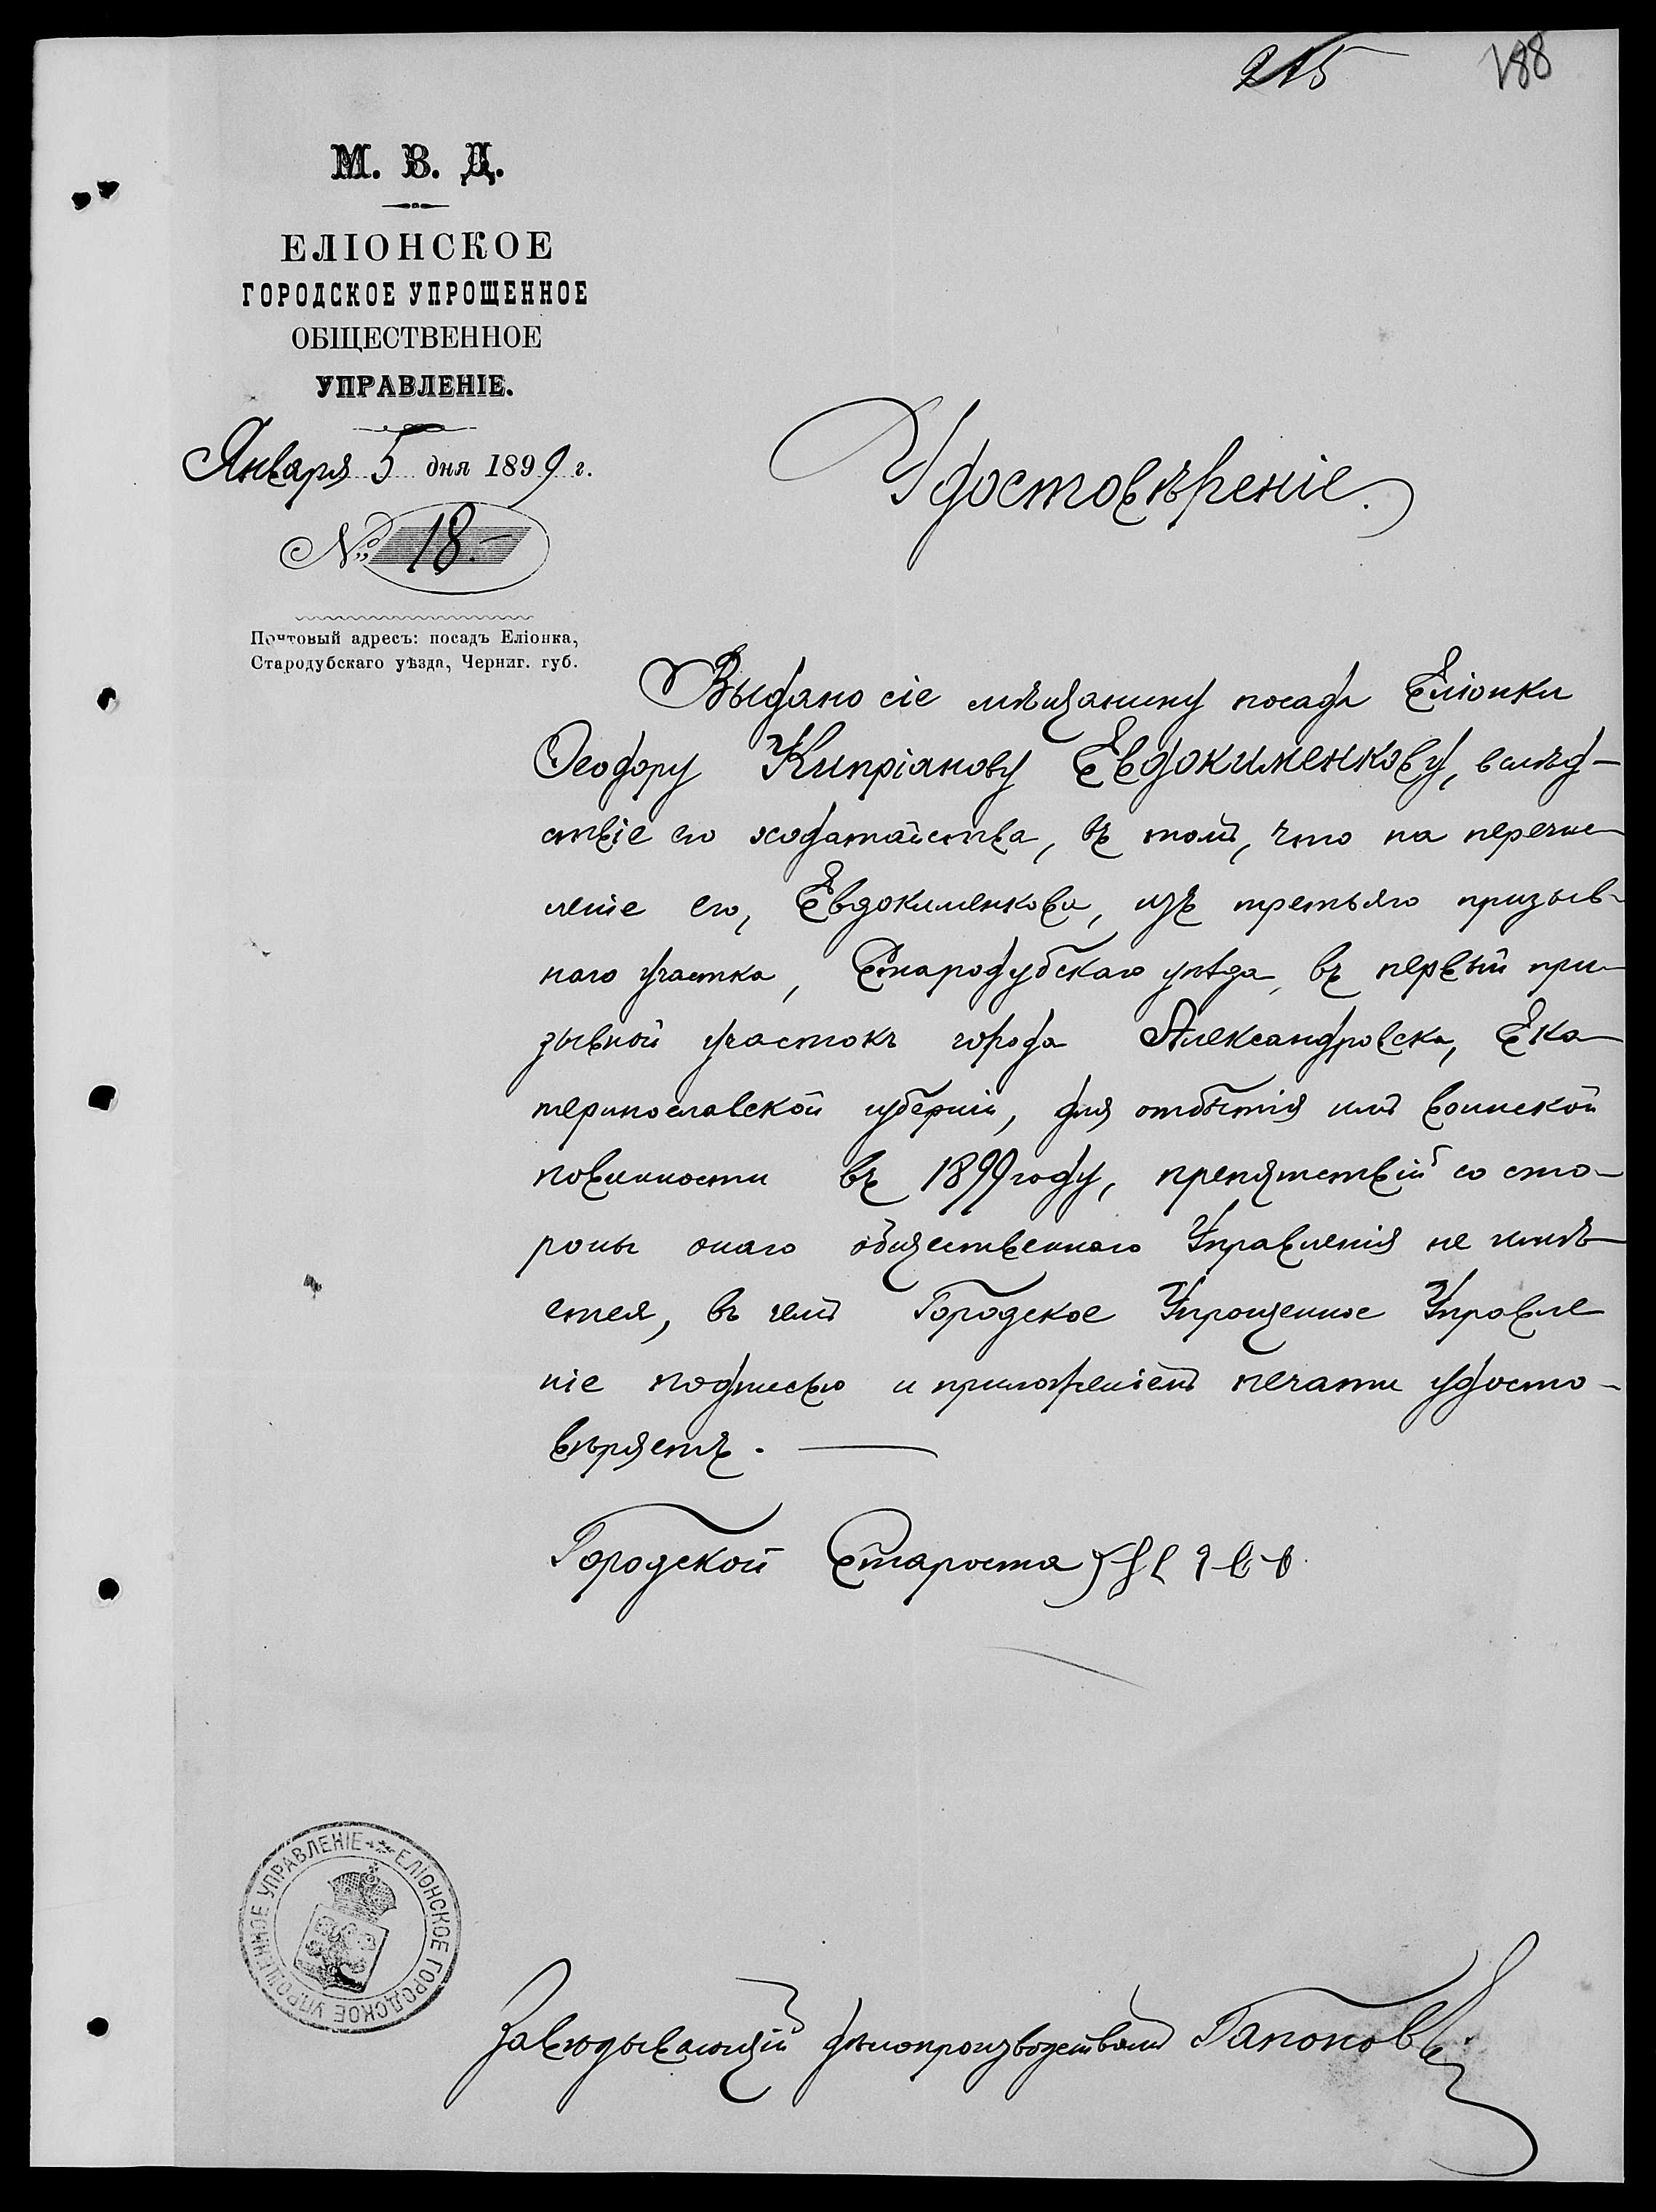 215 188
М. В. Д.
ЕЛІОНСКОЕ
ГОРОДСКОЕ УПРОЩЕННОЕ
ОБЩЕСТВЕННОЕ
УПРАВЛЕНІЕ.
Января 5 дня 1899 г.
№ 18.-
Почтовый адресъ: посадъ Еліонка,
Стародубскаго уѣзда, Черниг. губ.
Удостовѣреніе.
Выдано сіе мѣщанину посада Еліонки
Ѳеодору Кипріанову Евдокименкову, вслѣд-
ствіе его ходатайства, въ томъ, что на перечис-
леніе его, Евдокименкова, изъ третьяго призыв-
наго участка, Стародубскаго уѣзда, въ первый при-
зывной участокъ города Александровска, Ека-
теринославской губерніи, для отбытія имъ воинской
повинности въ 1899 году, препятствій со сто-
роны онаго общественнаго Управленія не имѣ-
ется, въ чемъ Городское Упрощенное Управле
ніе подписью и приложеніемъ печати удосто-
вѣряетъ.
Городской Староста
ЕЛІОНСКОЕ ГОРОДСКОЕ УПРОЩЕННОЕ УПРАВЛЕНІЕ
Завѣдывающій дѣлопроизводствомъ Гапоновъ